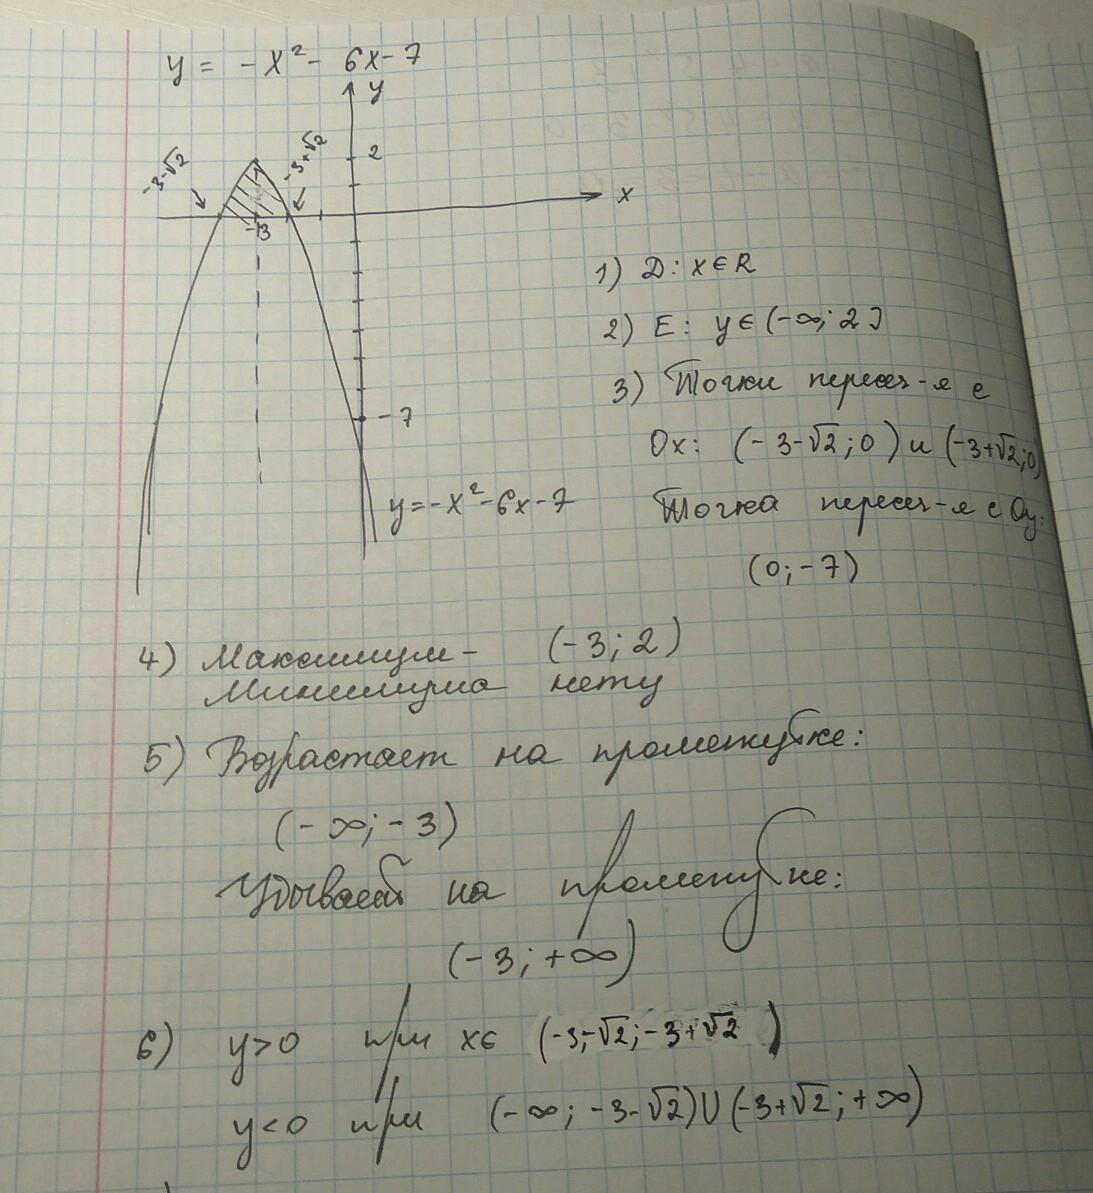 y = -x² - 6x - 7
y
-3-√2
-3+√2
2
x
-3
-7
y = -x² - 6x - 7
1) D: x∈R
2) E: y∈(-∞; 2]
3) Точки пересеч-я с
Ox: (-3-√2; 0) и (-3+√2; 0)
Точка пересеч-я с Oy:
(0; -7)
4) Максимум - (-3; 2)
Минимума нету
5) Возрастает на промежутке:
(-∞; -3)
Убывает на промежутке:
(-3; +∞)
6) y>0 при x∈ (-3-√2; -3+√2)
y<0 при (-∞; -3-√2)∪(-3+√2; +∞)